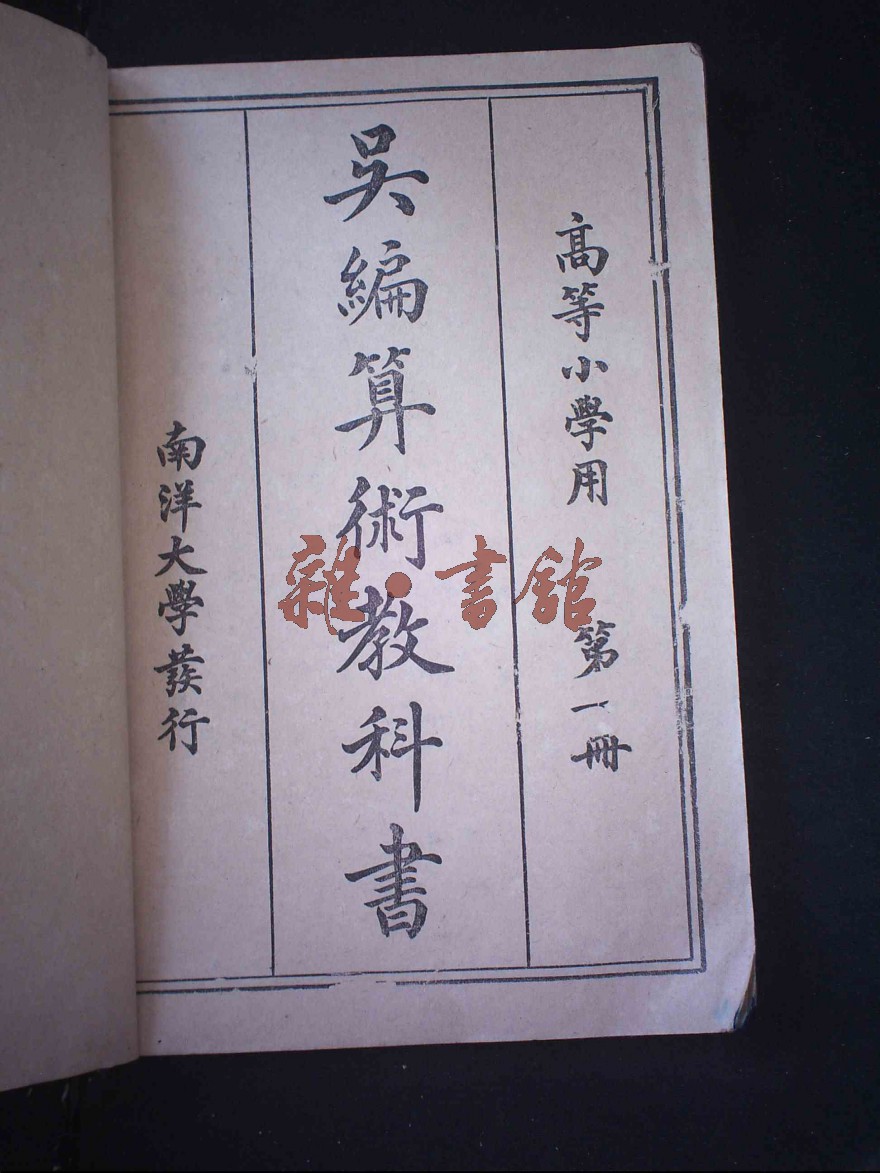 高等小學用 第一冊
吳編算術教科書
南洋大學發行
雜·書館